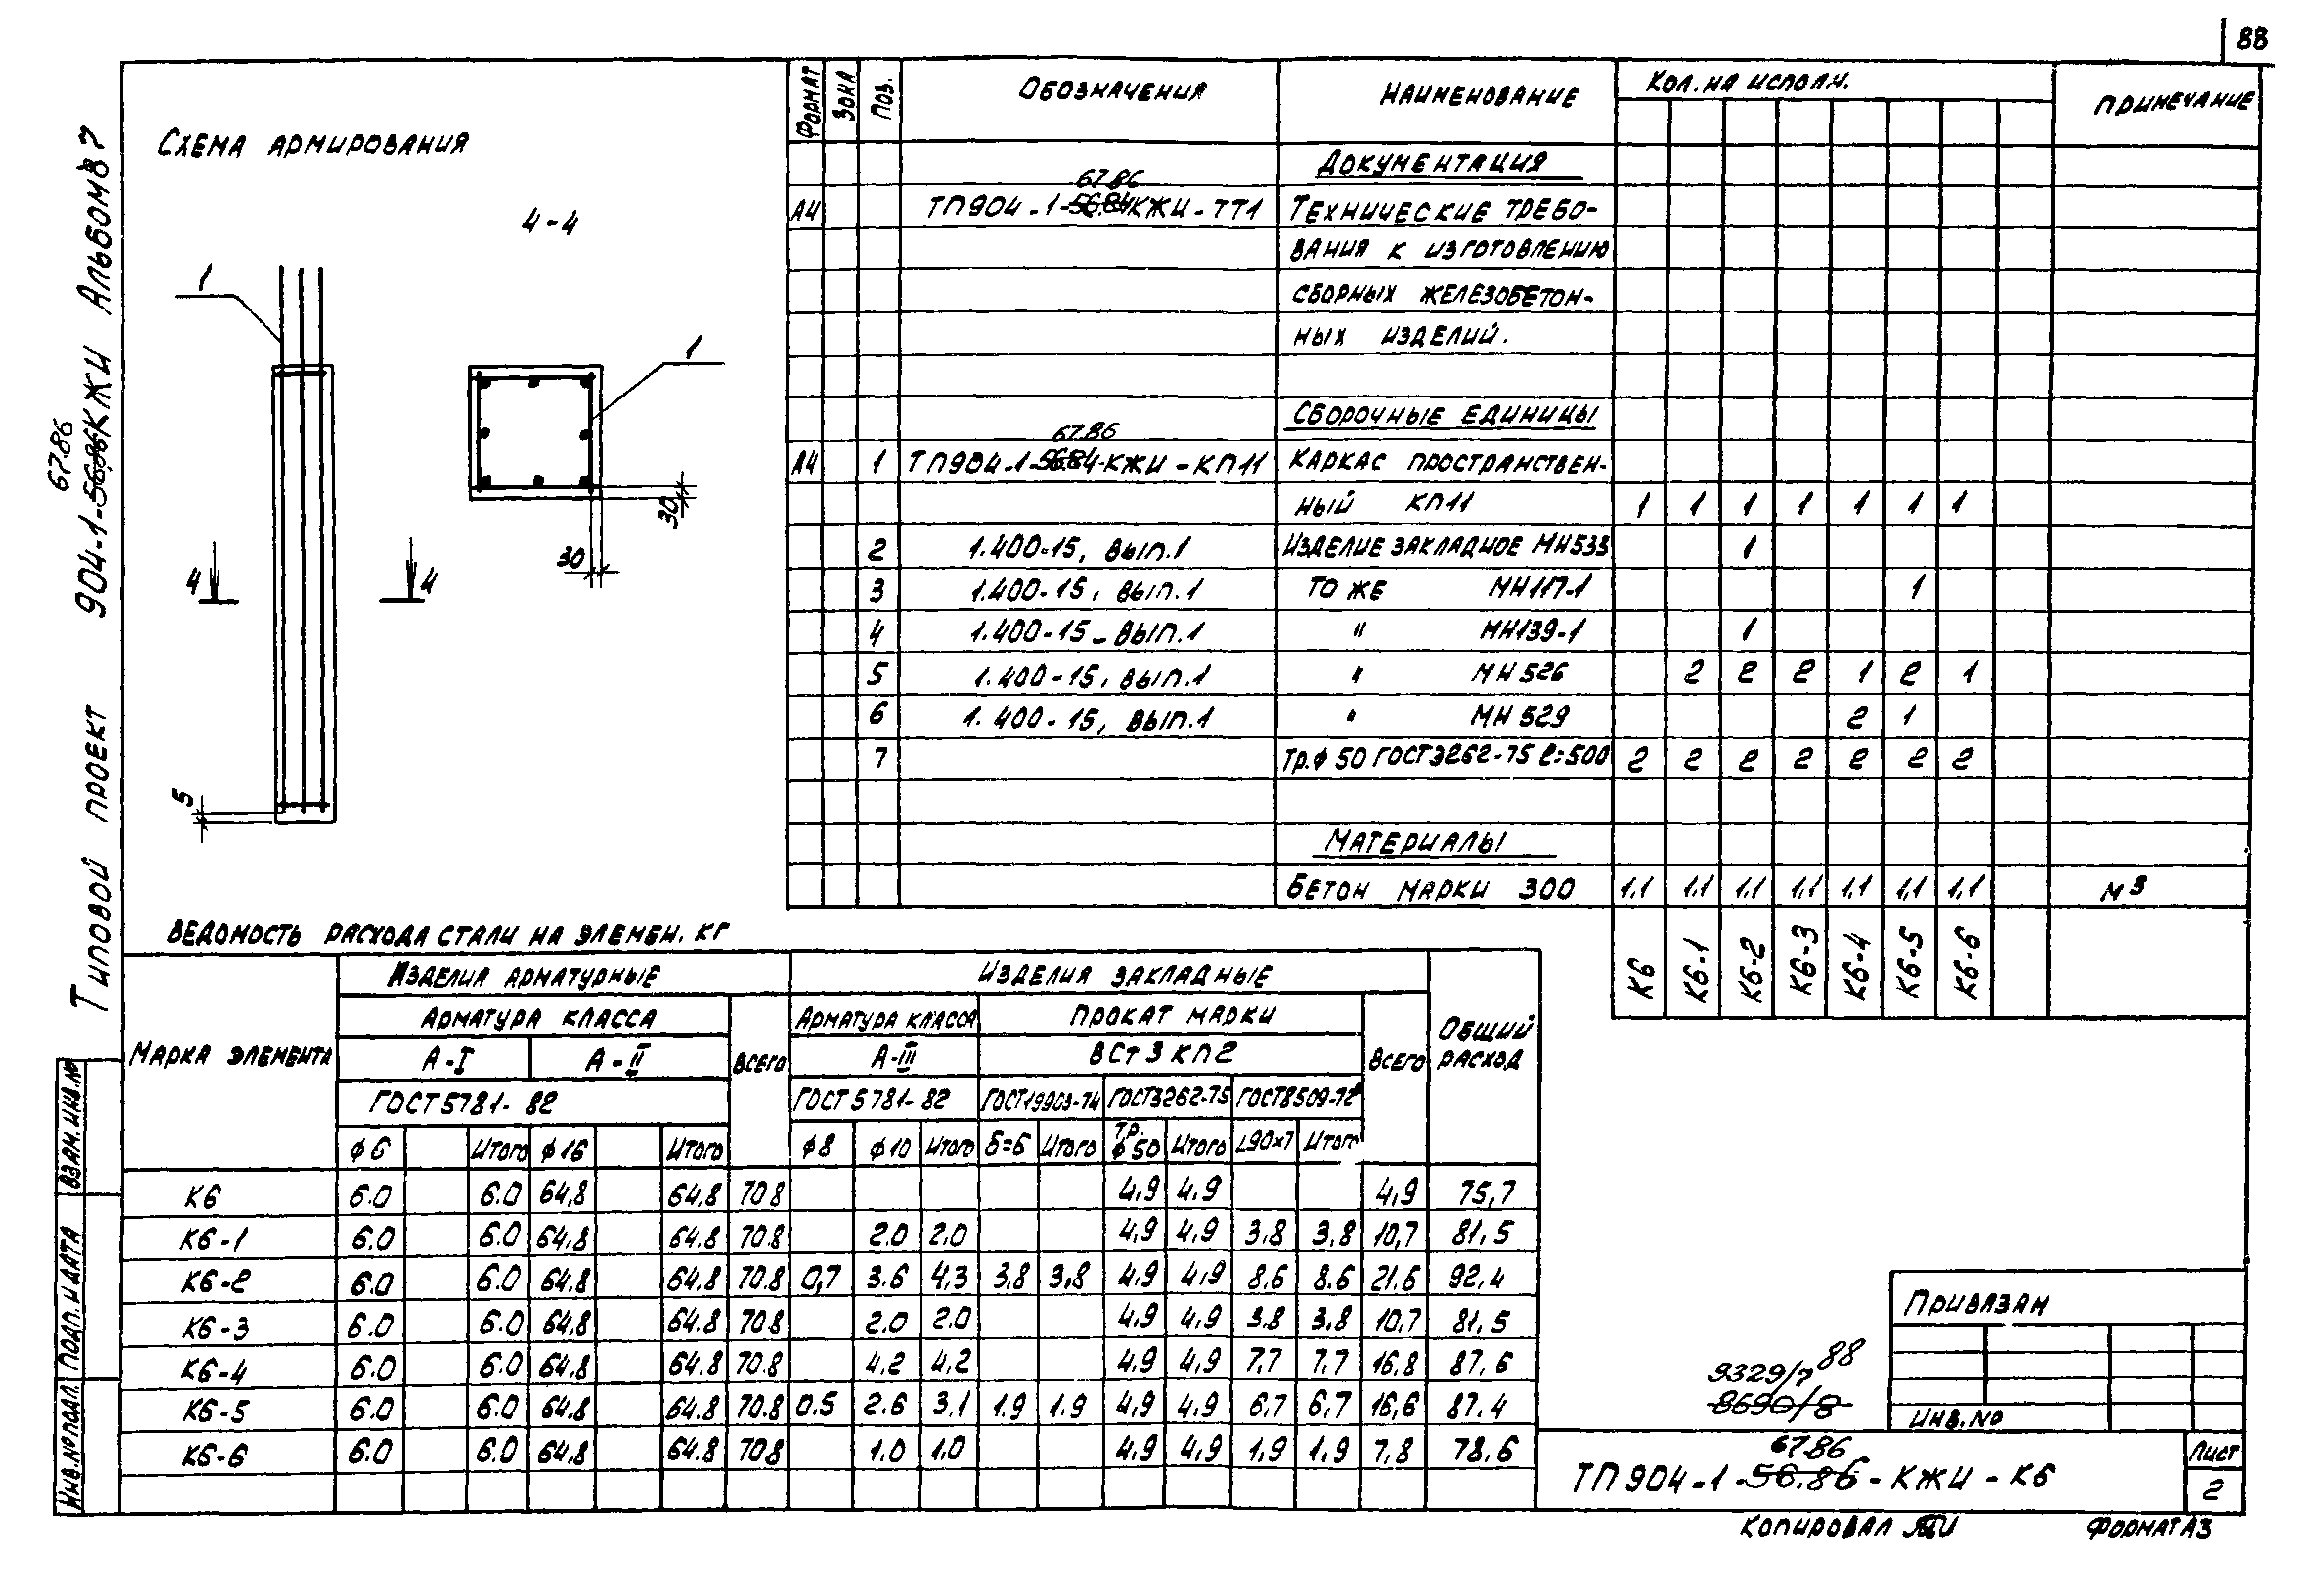 88
Типовой проект 904-1-56.86 КЖИ Альбом 8 7
67.86
Схема армирования
4-4
1
1
30
30
4 4
5
Формат Зона Поз. Обозначения Наименование Кол. на исполн. Примечание
Документация
67.86
А4 ТП904-1-56.84 КЖИ-ТТ1 Технические требо-
вания к изготовлению
сборных железобетон-
ных изделий.
Сборочные единицы
67.86
А4 1 ТП904-1-56.84-КЖИ-КП11 Каркас пространствен-
ный КП11 1 1 1 1 1 1 1
2 1.400-15, вып.1 Изделие закладное МН533 1
3 1.400-15, вып.1 То же МН117-1 1
4 1.400-15-вып.1 " МН139-1 1
5 1.400-15, вып.1 " МН526 2 2 2 1 2 1
6 1.400-15, вып.1 " МН529 2 1
7 Тр.ф 50 ГОСТ3262-75 ℓ=500 2 2 2 2 2 2 2
Материалы
Бетон марки 300 1,1 1,1 1,1 1,1 1,1 1,1 1,1 м3
К6 К6-1 К6-2 К6-3 К6-4 К6-5 К6-6
Ведомость расхода стали на элемен. кг
Марка элемента Изделия арматурные Изделия закладные Общий расход
Арматура класса Всего Арматура класса Прокат марки Всего
А-I А-II А-III ВСт3кп2
ГОСТ5781-82 ГОСТ5781-82 ГОСТ19903-74 ГОСТ3262-75 ГОСТ8509-72
ф6 Итого ф16 Итого ф8 ф10 Итого δ=6 Итого Тр. ф50 Итого L90×7 Итого
К6 6.0 6.0 64,8 64,8 70.8 4,9 4,9 4,9 75,7
К6-1 6.0 6.0 64,8 64.8 70.8 2.0 2.0 4,9 4,9 3,8 3,8 10,7 81,5
К6-2 6.0 6.0 64,8 64,8 70.8 0,7 3.6 4,3 3,8 3,8 4,9 4,9 8,6 8.6 21,6 92,4
К6-3 6.0 6.0 64,8 64.8 70.8 2.0 2.0 4,9 4,9 3,8 3,8 10,7 81,5
К6-4 6.0 6.0 64,8 64.8 70.8 4,2 4,2 4,9 4,9 7,7 7,7 16,8 87,6
К6-5 6.0 6.0 64,8 64.8 70.8 0.5 2.6 3,1 1.9 1.9 4,9 4,9 6,7 6,7 16,6 87.4
К6-6 6.0 6.0 64,8 64.8 70.8 1.0 1.0 4,9 4,9 1,9 1,9 7,8 78,6
Взам.инв.№
Подп. и дата
Инв.№ подл.
Привязан
Инв.№
9329/7 88
8690/8
67.86
ТП904-1-56.86-КЖИ-К6
Лист
2
Копировал
Формат А3